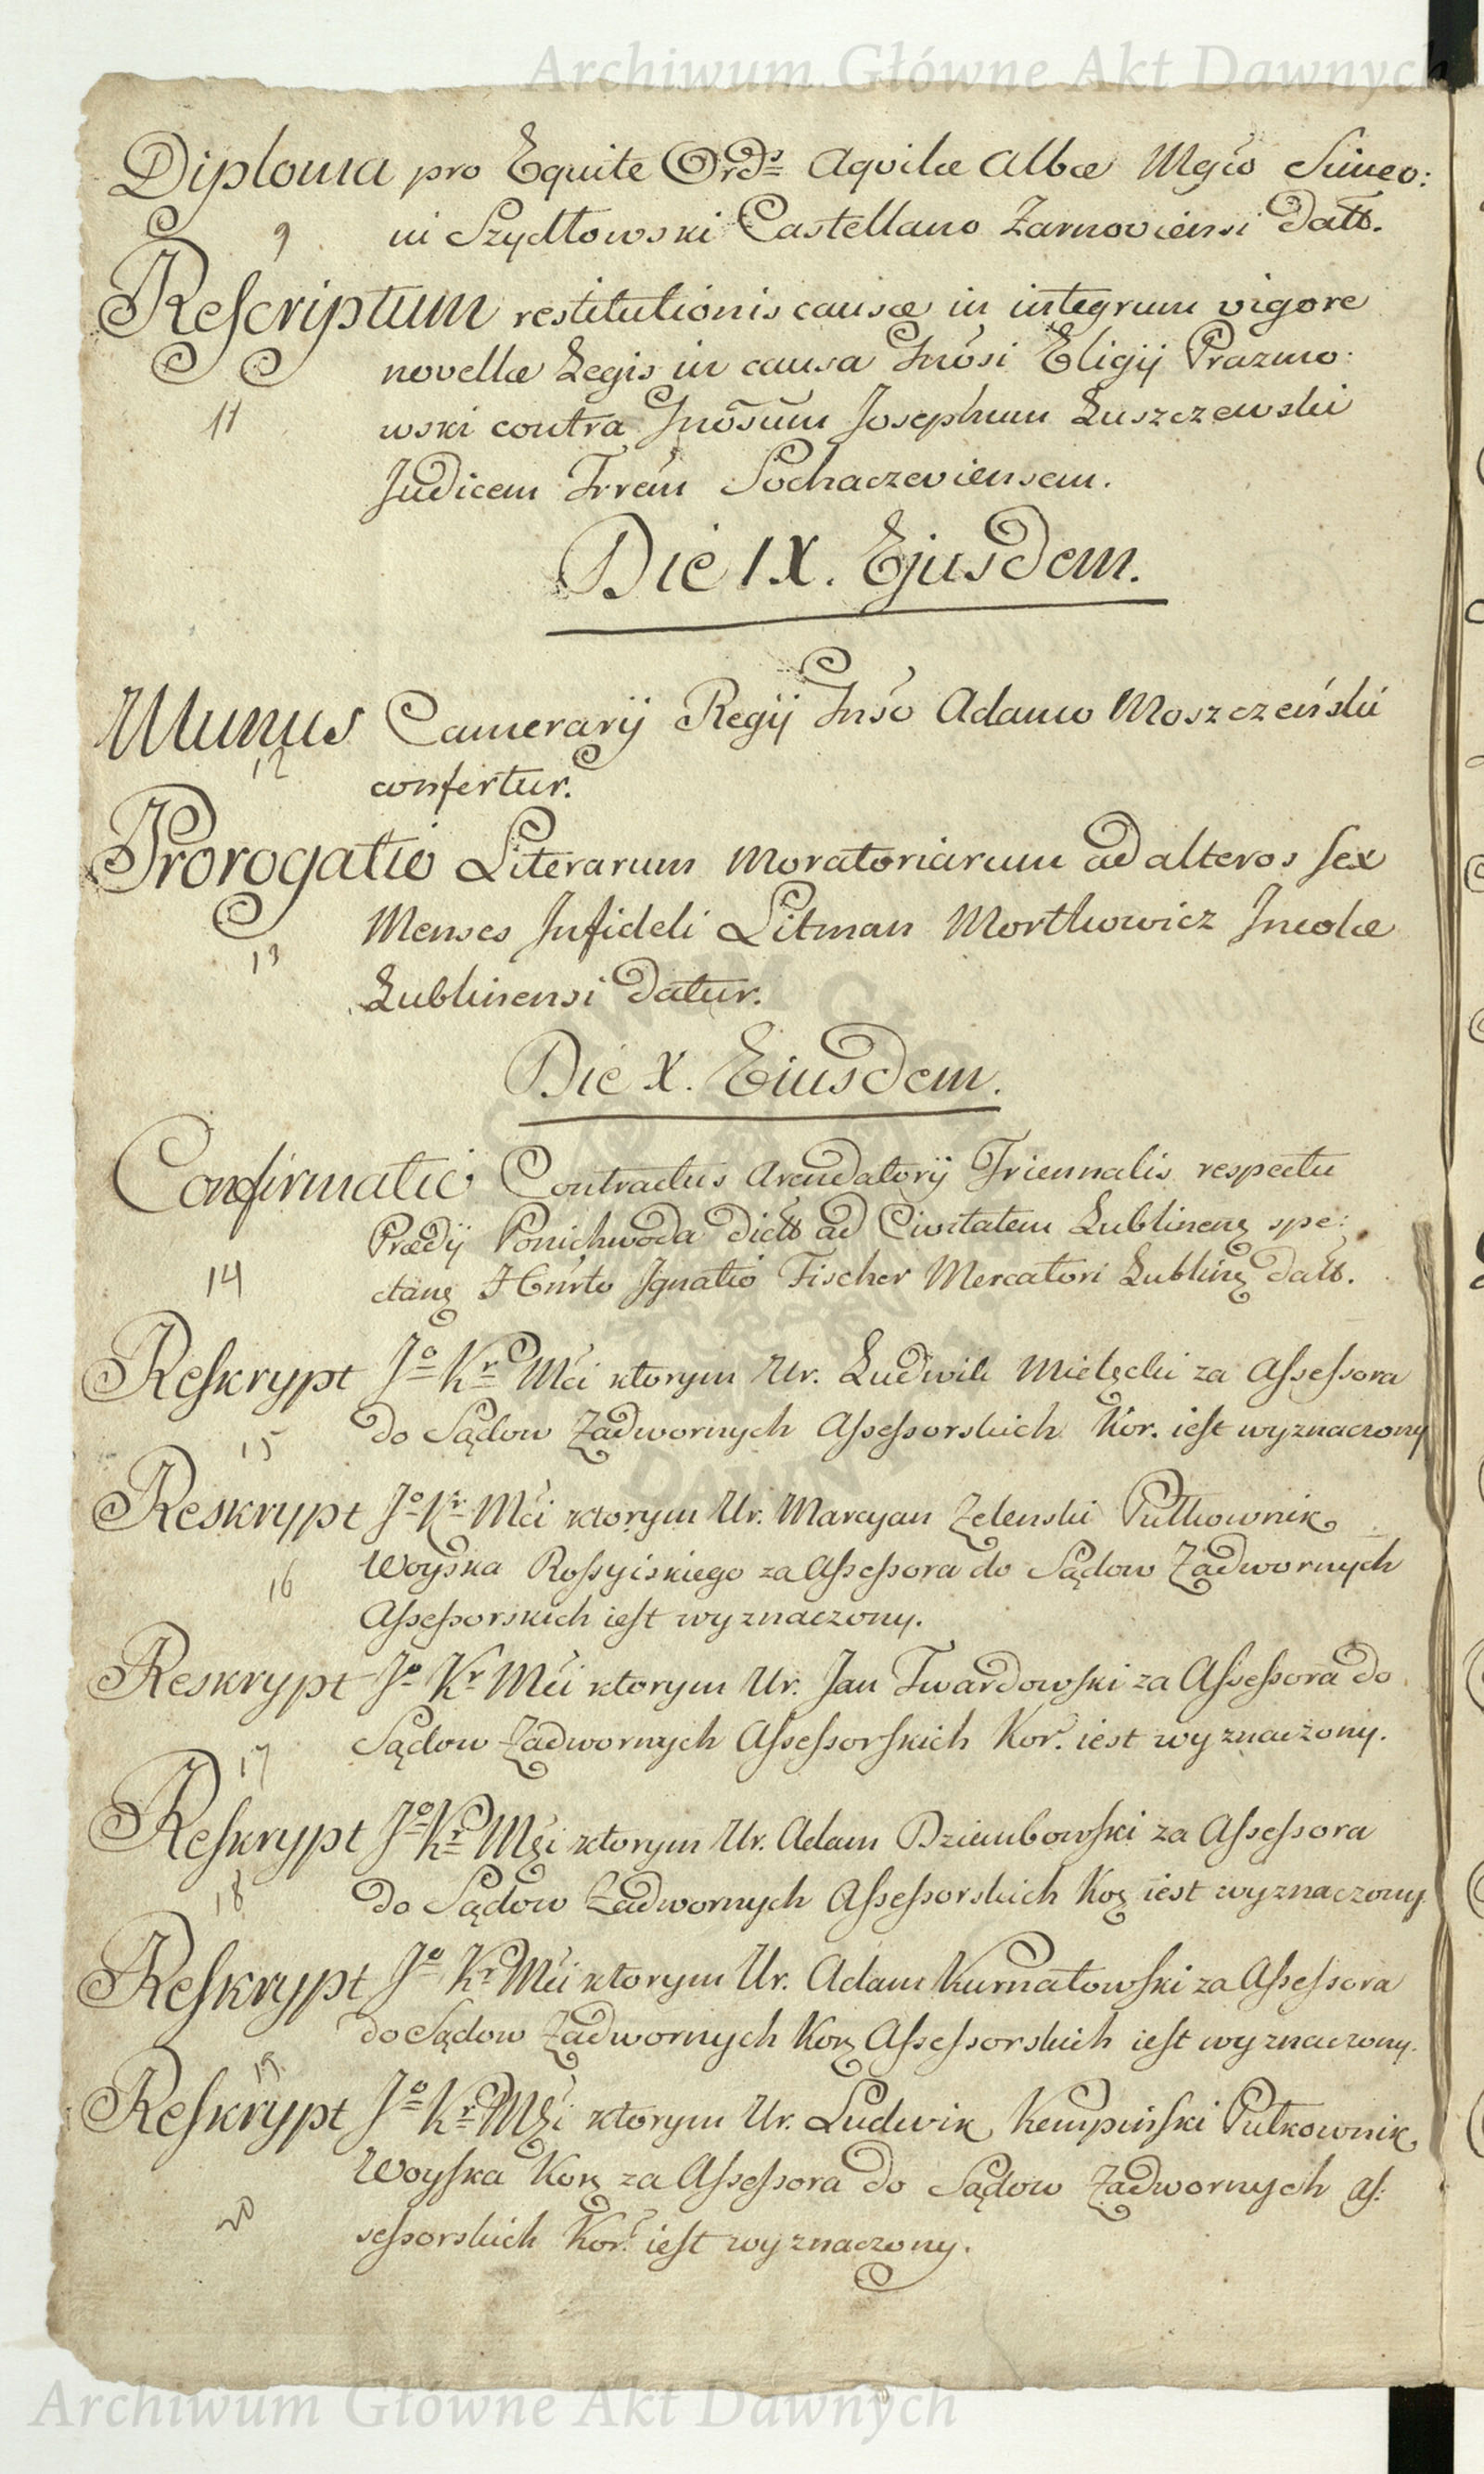 Archiwum Główne Akt Dawnych
Diploma pro Equite Ords Aquilæ Albæ Mgco Simeo:
9
ni Szydłowski Castellano Zarnoviensi datt.
Rescriptum restitutionis causæ in integrum vigore
novellæ Legis in causa Gnosi Eligij Prazmo:
11
wski contra Gnosum Josephum Łuszczewski
Judicem Trrem Sochaczeviensem.
Die IX. Ejusdem.
Munus Camerarij Regij Gnso Adamo Moszczeński
12
confertur.
Prorogatio Literarum Moratoriarum ad alteros sex
Menses Infideli Litman Mortkowicz Incolæ
13
Lublinensi datur.
Die X. Eiusdem.
Confirmatio Contractus Arendatorij Triennalis respectu
Prædij Ponichwoda dict ad Civitatem Lublinen spe:
14
ctan Ignatio Fischer Mercatori Lublin datt.
Reskrypt Jo Kr Mci ktorym Ur. Ludwik Mielęcki za Assessora
do Sądow Zadwornych Assessorskich Kor. iest wyznaczony
15
Reskrypt Jo Kr Mci ktorym Ur. Marcyan Zelenski Pułkownik
Woyska Rossyiskiego za Assessora do Sądow Zadwornych
16
Assessorskich iest wyznaczony.
Reskrypt Jo Kr Mci ktorym Ur. Jan Twardowski za Assessora do
Sądow Zadwornych Assessorskich Kor. iest wyznaczony.
17
Reskrypt Jo Kr Mci ktorym Ur. Adam Dziembowski za Assessora
do Sądow Zadwornych Assessorskich Kor iest wyznaczony.
18
Reskrypt Jo Kr Mci ktorym Ur. Adam Kurnatowski za Assessora
do Sądow Zadwornych Kor Assessorskich iest wyznaczony.
19.
Reskrypt Jo Kr Mci ktorym Ur. Ludwik Kempiński Pułkownik
Woyska Kor za Assessora do Sądow Zadwornych As:
20
sessorskich Kor. iest wyznaczony.
Archiwum Główne Akt Dawnych